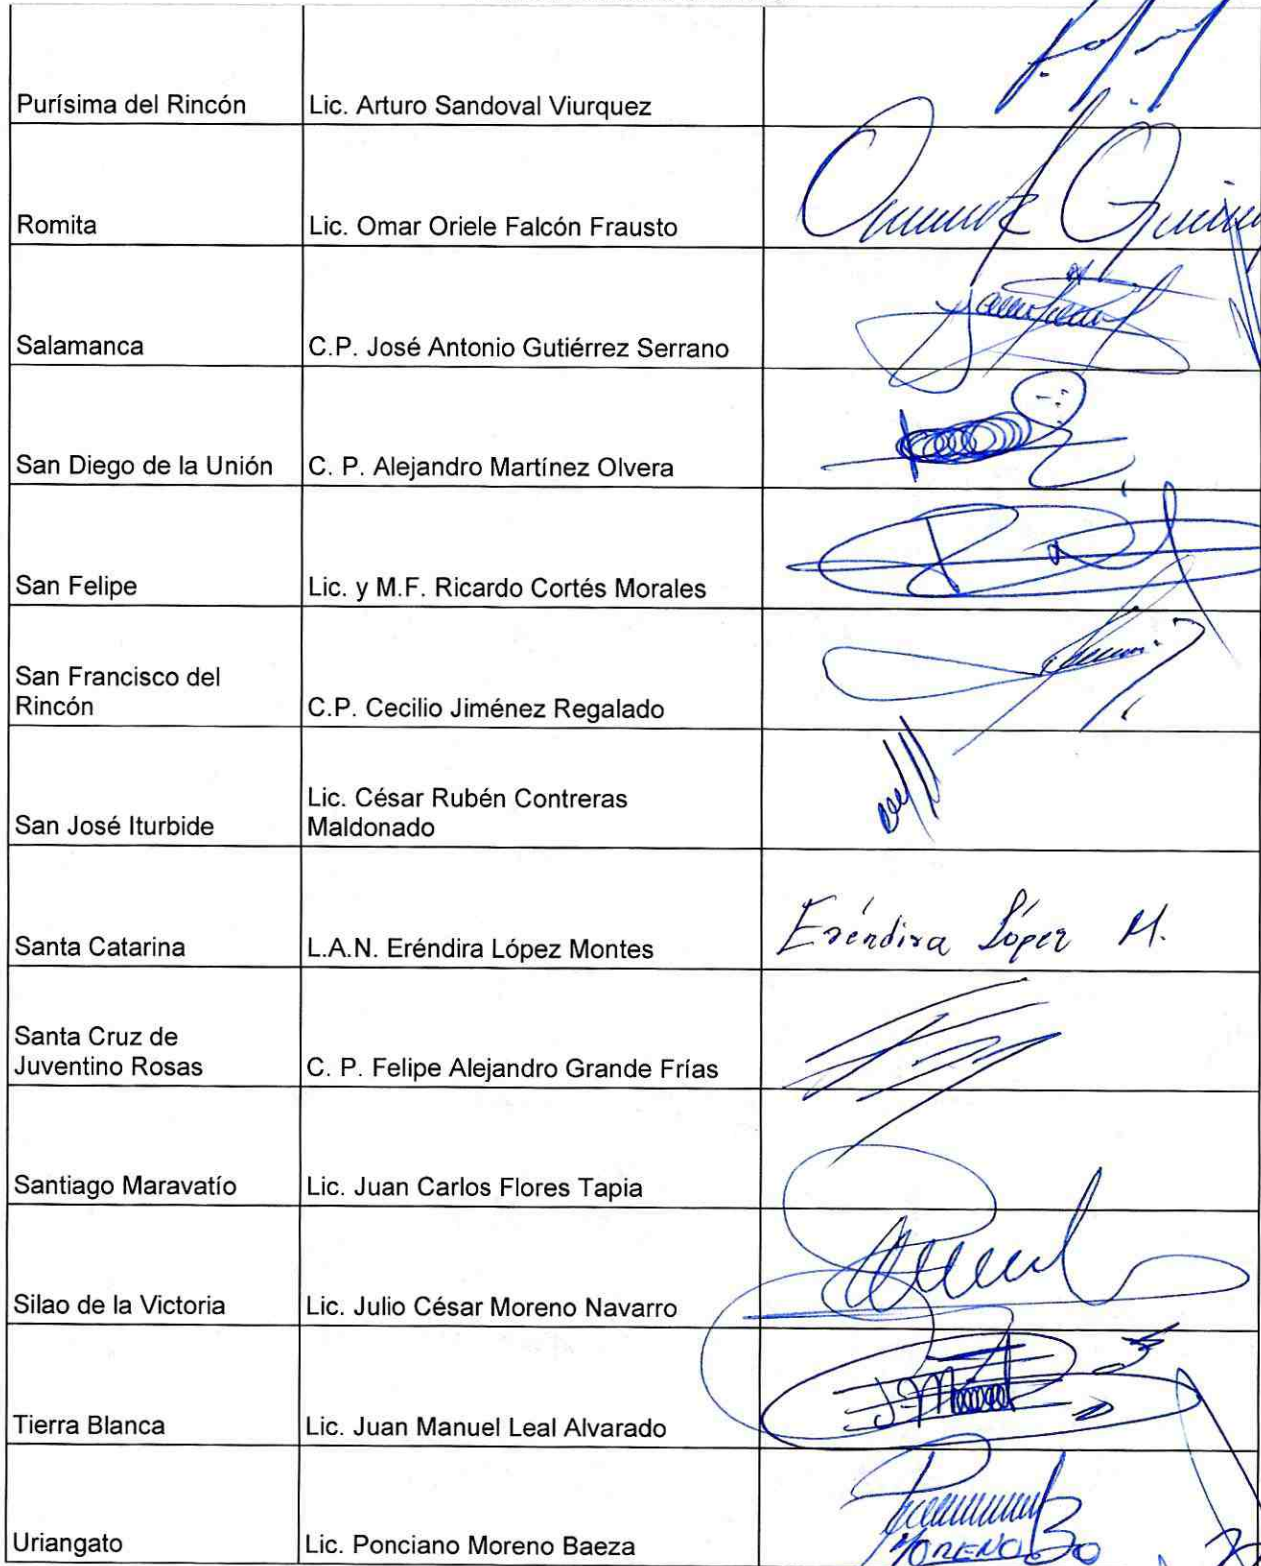 Purísima del Rincón
Lic. Arturo Sandoval Viurquez
Romita
Lic. Omar Oriele Falcón Frausto
Salamanca
C.P. José Antonio Gutiérrez Serrano
San Diego de la Unión
C. P. Alejandro Martínez Olvera
San Felipe
Lic. y M.F. Ricardo Cortés Morales
San Francisco del
Rincón
C.P. Cecilio Jiménez Regalado
San José Iturbide
Lic. César Rubén Contreras
Maldonado
Santa Catarina
L.A.N. Eréndira López Montes
Eréndira López M.
Santa Cruz de
Juventino Rosas
C. P. Felipe Alejandro Grande Frías
Santiago Maravatío
Lic. Juan Carlos Flores Tapia
Silao de la Victoria
Lic. Julio César Moreno Navarro
Tierra Blanca
Lic. Juan Manuel Leal Alvarado
Uriangato
Lic. Ponciano Moreno Baeza
MORENO